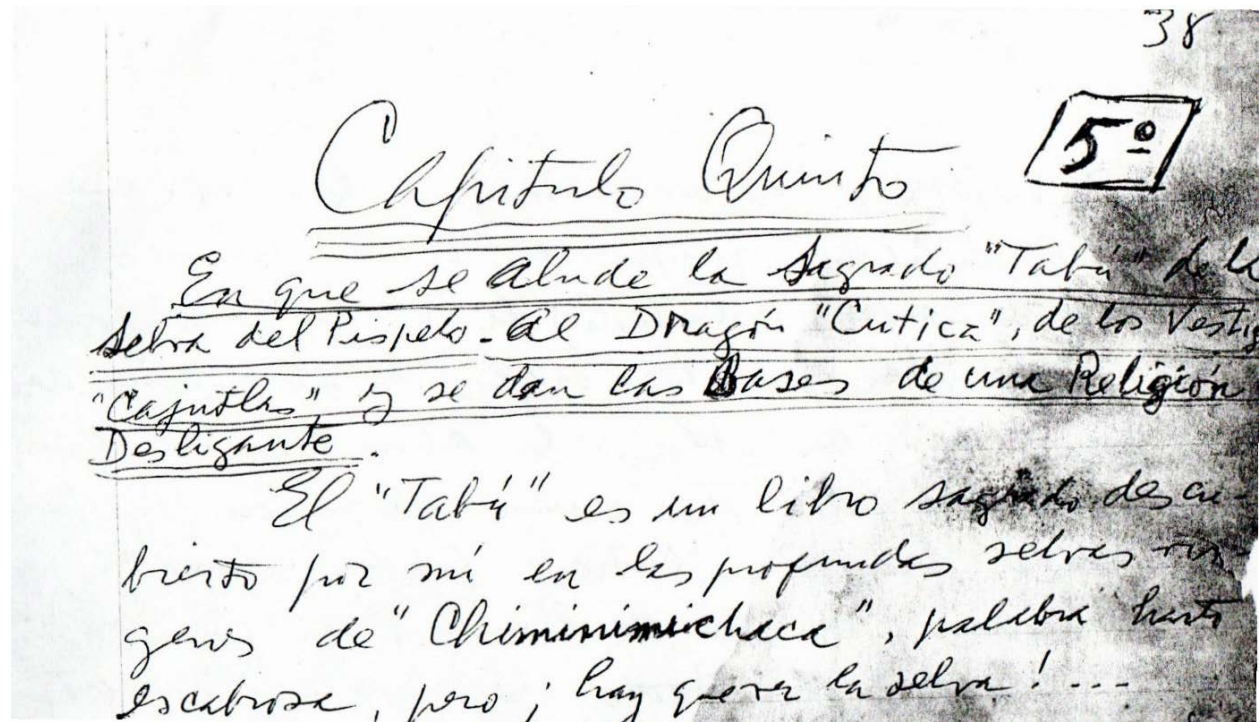 38
5º
Capitulo Quinto
En que se alude la Sagrado "Tabú" de la
Selva del Pispelo - al Dragón "Cutica", de los Vestig
"Cajutlas", y se dan las Bases de una Religión
Desligante.
El "Tabú" es un libro sagrado descu-
bierto por mí en las profundas selvas vír-
genes de "Chiminimichaca", palabra harto
escabrosa, pero ¡ hay que ver la selva! ...